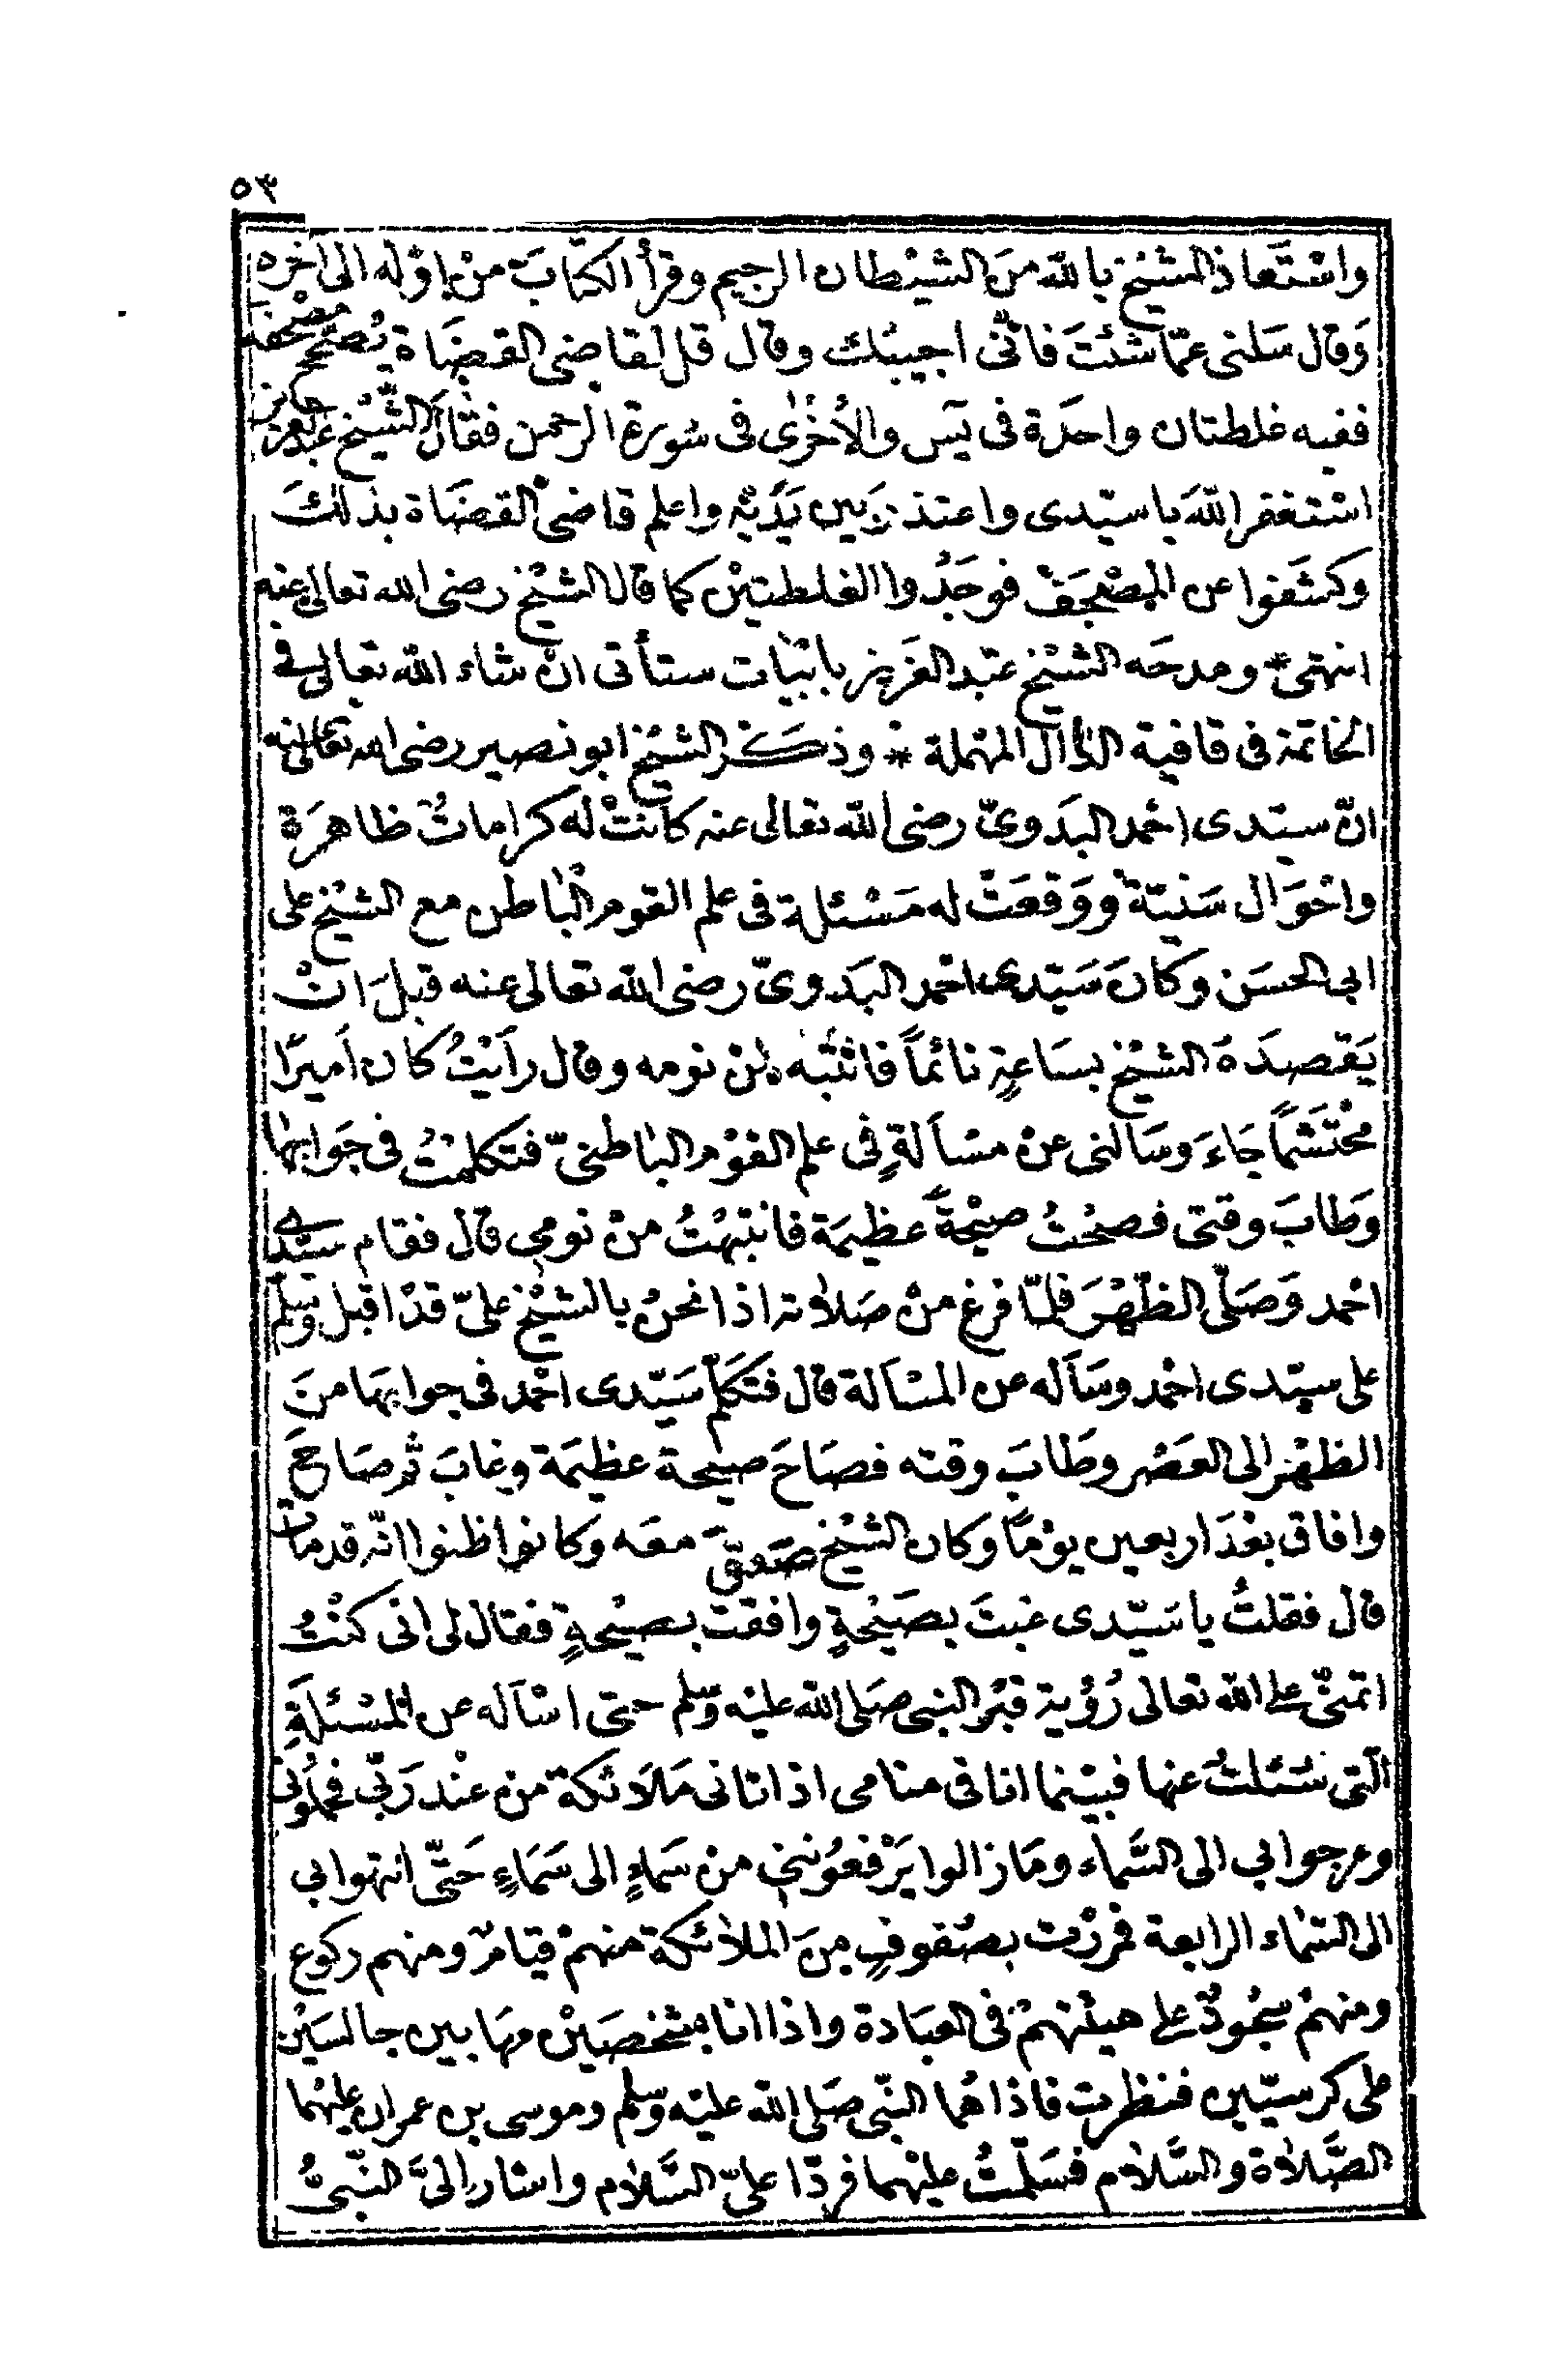 ٥٣
واسْتَعاذ الشيْخ بالله منَ الشيْطان الرجيم وقرأ الكتابَ منْ اوّله الى اخره
وَقال سَلنى عمّا شئتَ فانّى اجيبُك وقال قل لقاضى القضَاة يُصَحّح مصْحفه
ففيه غلطتان واحدَة فى يَس والأخرى فى سُورة الرحمن فقالَ الشّيْخ عبد العزيز
اسْتغفر اللهَ يا سيّدى واعتذرَ بين يَدَيْه واعلم قاضىَ القضَاة بذلكَ
وكشَفوا عن المصْحَف فوجَدُوا الغلطتيْن كما قال الشيْخ رضى الله تعالى عنه
انتهى * ومدحَه الشيْخ عبْد العَزيز بابْيات ستأتى انْ شاء الله تعالى فى
الخاتمة فى قافية الدال المهْملة * وذكَر الشيْخ ابو نصير رضى الله تعالى عنه
انّ سيّدى احْمد البدَوىّ رضى الله تعالى عنه كانتْ له كراماتٌ ظاهرَة
واحْوَال سَنيّة ووَقعَتْ له مَسْئلة فى علم القوم الباطن مع الشيْخ على
ابى الحسَن وكانَ سَيّدى احْمد البَدوىّ رضى الله تعالى عنه قبلَ انْ
يَقصدَهُ الشيْخ بسَاعةٍ نائماً فانْتبَه منْ نومه وقال رأيْتُ كان اَميرًا
محْتَشماً جَاءَ وسَالنى عنْ مسْاَلةٍ فى علم القوْم الباطنىّ فتكلمْتُ فى جَوابها
وَطابَ وقتى فصحْتُ صيْحةً عظيمَة فانتبَهْتُ منْ نومى قال فقام سيّدى
احْمد وَصَلّى الظّهْرَ فلمّا فرغ منْ صَلاته اذا نحنُ بالشيْخ علىّ قدْ اقبل وسلم
على سيّدى احْمد وسَاَله عن المسْالة قال فتَكلّم سَيّدى احْمد فى جوابهَا منَ
الظهْر الى العَصْر وطَابَ وقته فصَاحَ صيْحة عظيمَة وغابَ ثم صَاحَ
وافاق بعْدَ اربعين يوْمًا وكان الشيْخ معَه وكانوا ظنوا انّه قد مات
قال فقلتُ يا سَيّدى غبتَ بصَيْحةٍ وافقتَ بصيْحةٍ فقال لى انى كنْتُ
اتمنّى على الله تعالى رُؤية قبْر النبى صَلى الله عليْه وسّلم حتى اسْاَله عن المسْئلَةِ
الّتى سُئلتُ عنها فبيْنما انا فى منامى اذ اتانى مَلاَئكة منْ عنْد رَبّى فحملُونى
وعرجوا بى الى السَّماء ومَا زالوا يَرْفعُونَنى منْ سَماءٍ الى سَمَاءٍ حَتّى انتهوا بى
الى السَّماء الرابعة فمررْت بصُفوفٍ منَ الملائكة منهمْ قيامٌ ومنهم ركوع
ومنهمْ سجُودٌ على هيئتهمْ فى العبَادة واذا انا بشخصَيْن مهَابين جالسَيْن
على كرسيّين فنظرت فاذا هُما النّبى صَلى الله عليْه وسّلم وموسى بن عمران عليْهما
الصَّلاة والسَّلام فسَلّمْتُ عليْهما فردّا علىّ السَّلام واشار الىَّ النّبىُّ